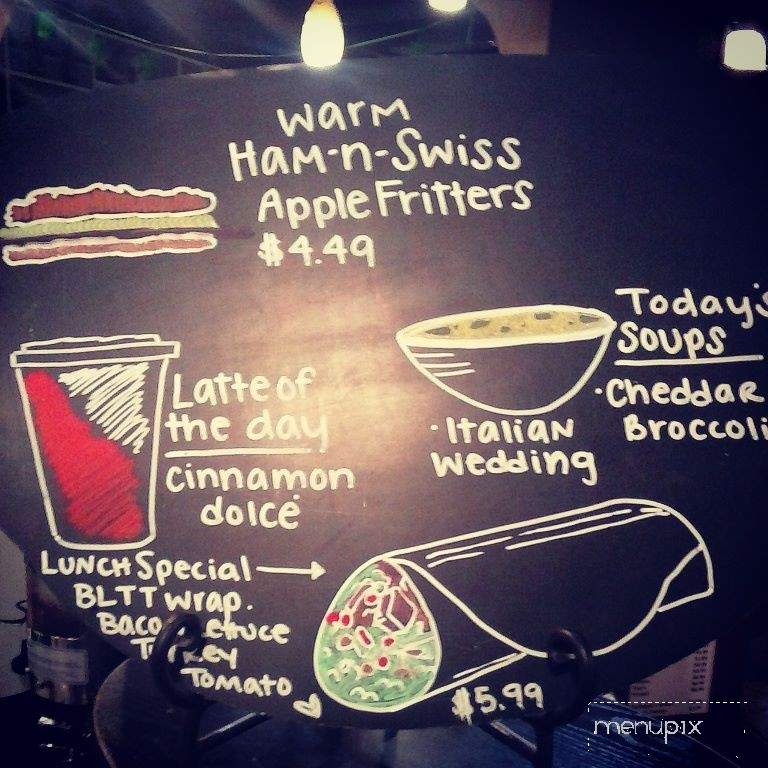 warm
Ham-n-Swiss
Apple Fritters
$4.49
Today's
Soups
·Cheddar
Broccoli
·Italian
Wedding
Latte of
the day
cinnamon
dolce
Lunch Special
BLTT wrap.
Bacon Lettuce
Turkey
Tomato
$5.99
menupix